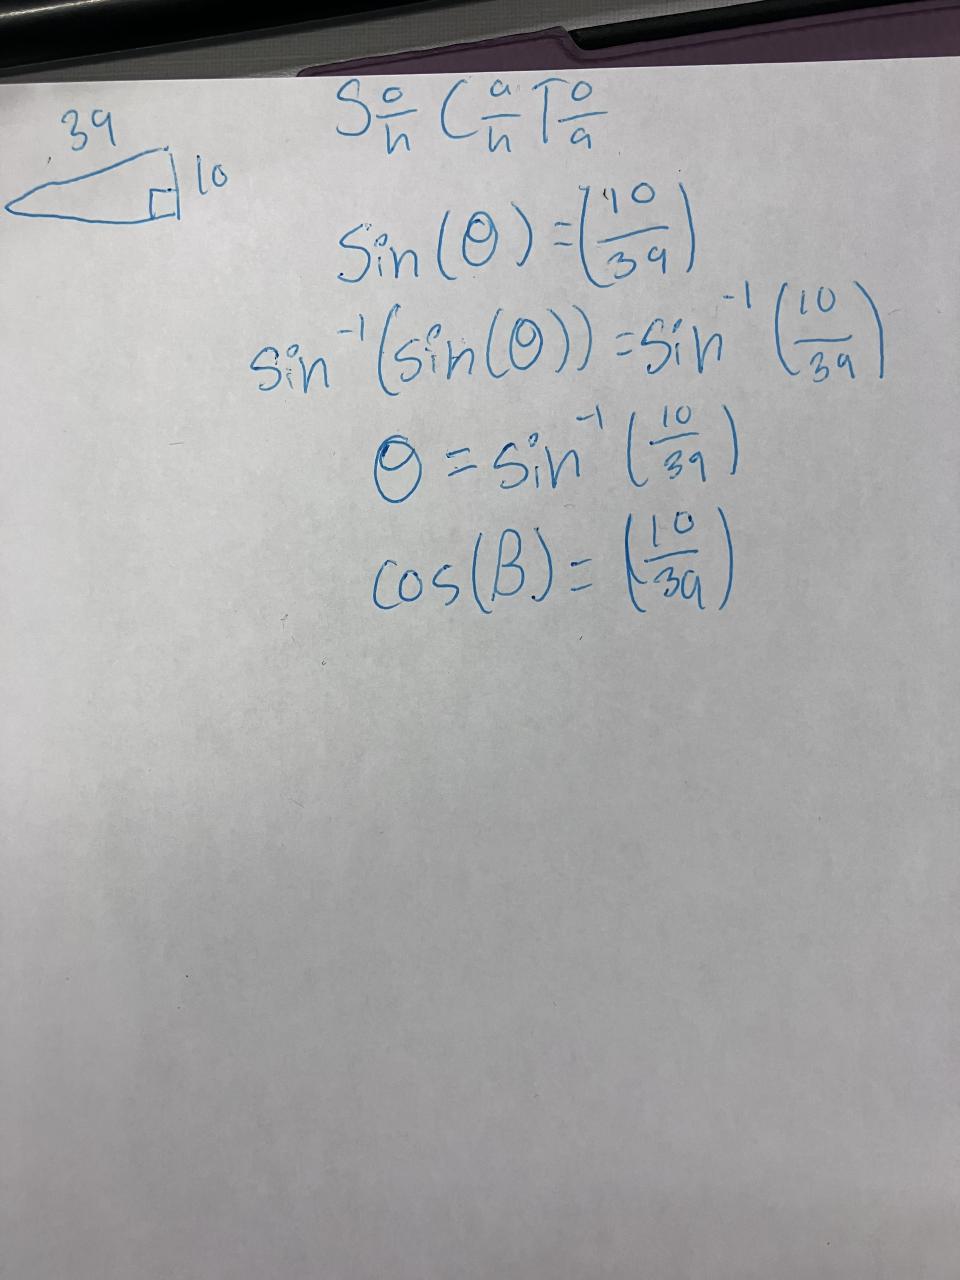 39
10
S o/h C a/h T o/a
Sin(θ) = (10/39)
sin⁻¹(sin(θ)) = sin⁻¹(10/39)
θ = sin⁻¹(10/39)
cos(β) = (10/39)